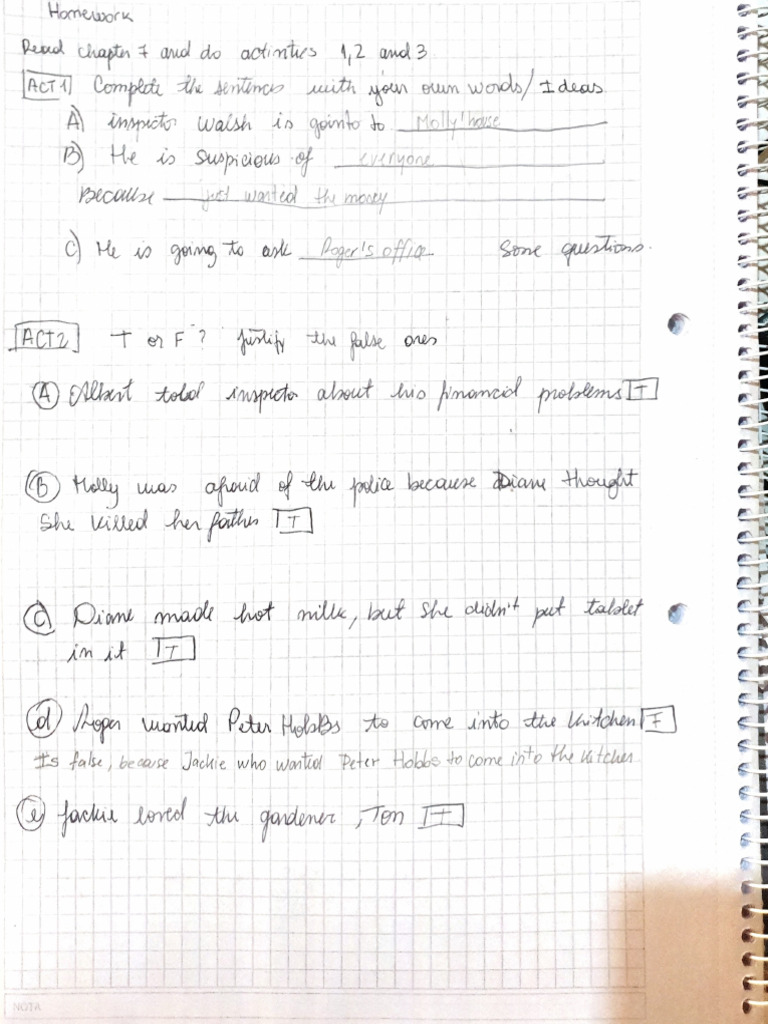 Homework
Read chapter 7 and do activities 1, 2 and 3
ACT 1 Complete the sentences with your own words/Ideas
A) inspector walsh is gointo to Molly'house
B) He is suspicious of everyone
Because just wanted the money
C) He is going to ask Roger's office some questions.
ACT 2 T or F? Justify the false ones
A Albert told inspector about his financial problems T
B Molly was afraid of the police because Diane thought
she killed her father T
C Diane made hot milk, but she didn't put tablet
in it T
d Roger wanted Peter Hobbs to come into the kitchen F
It's false, because Jackie who wanted Peter Hobbs to come into the kitchen
e Jackie loved the gardener, Ton T
NOTA